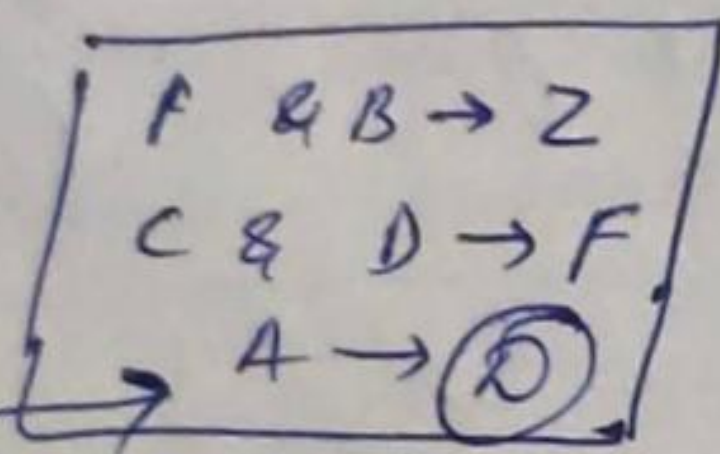 F & B → Z
C & D → F
A → D